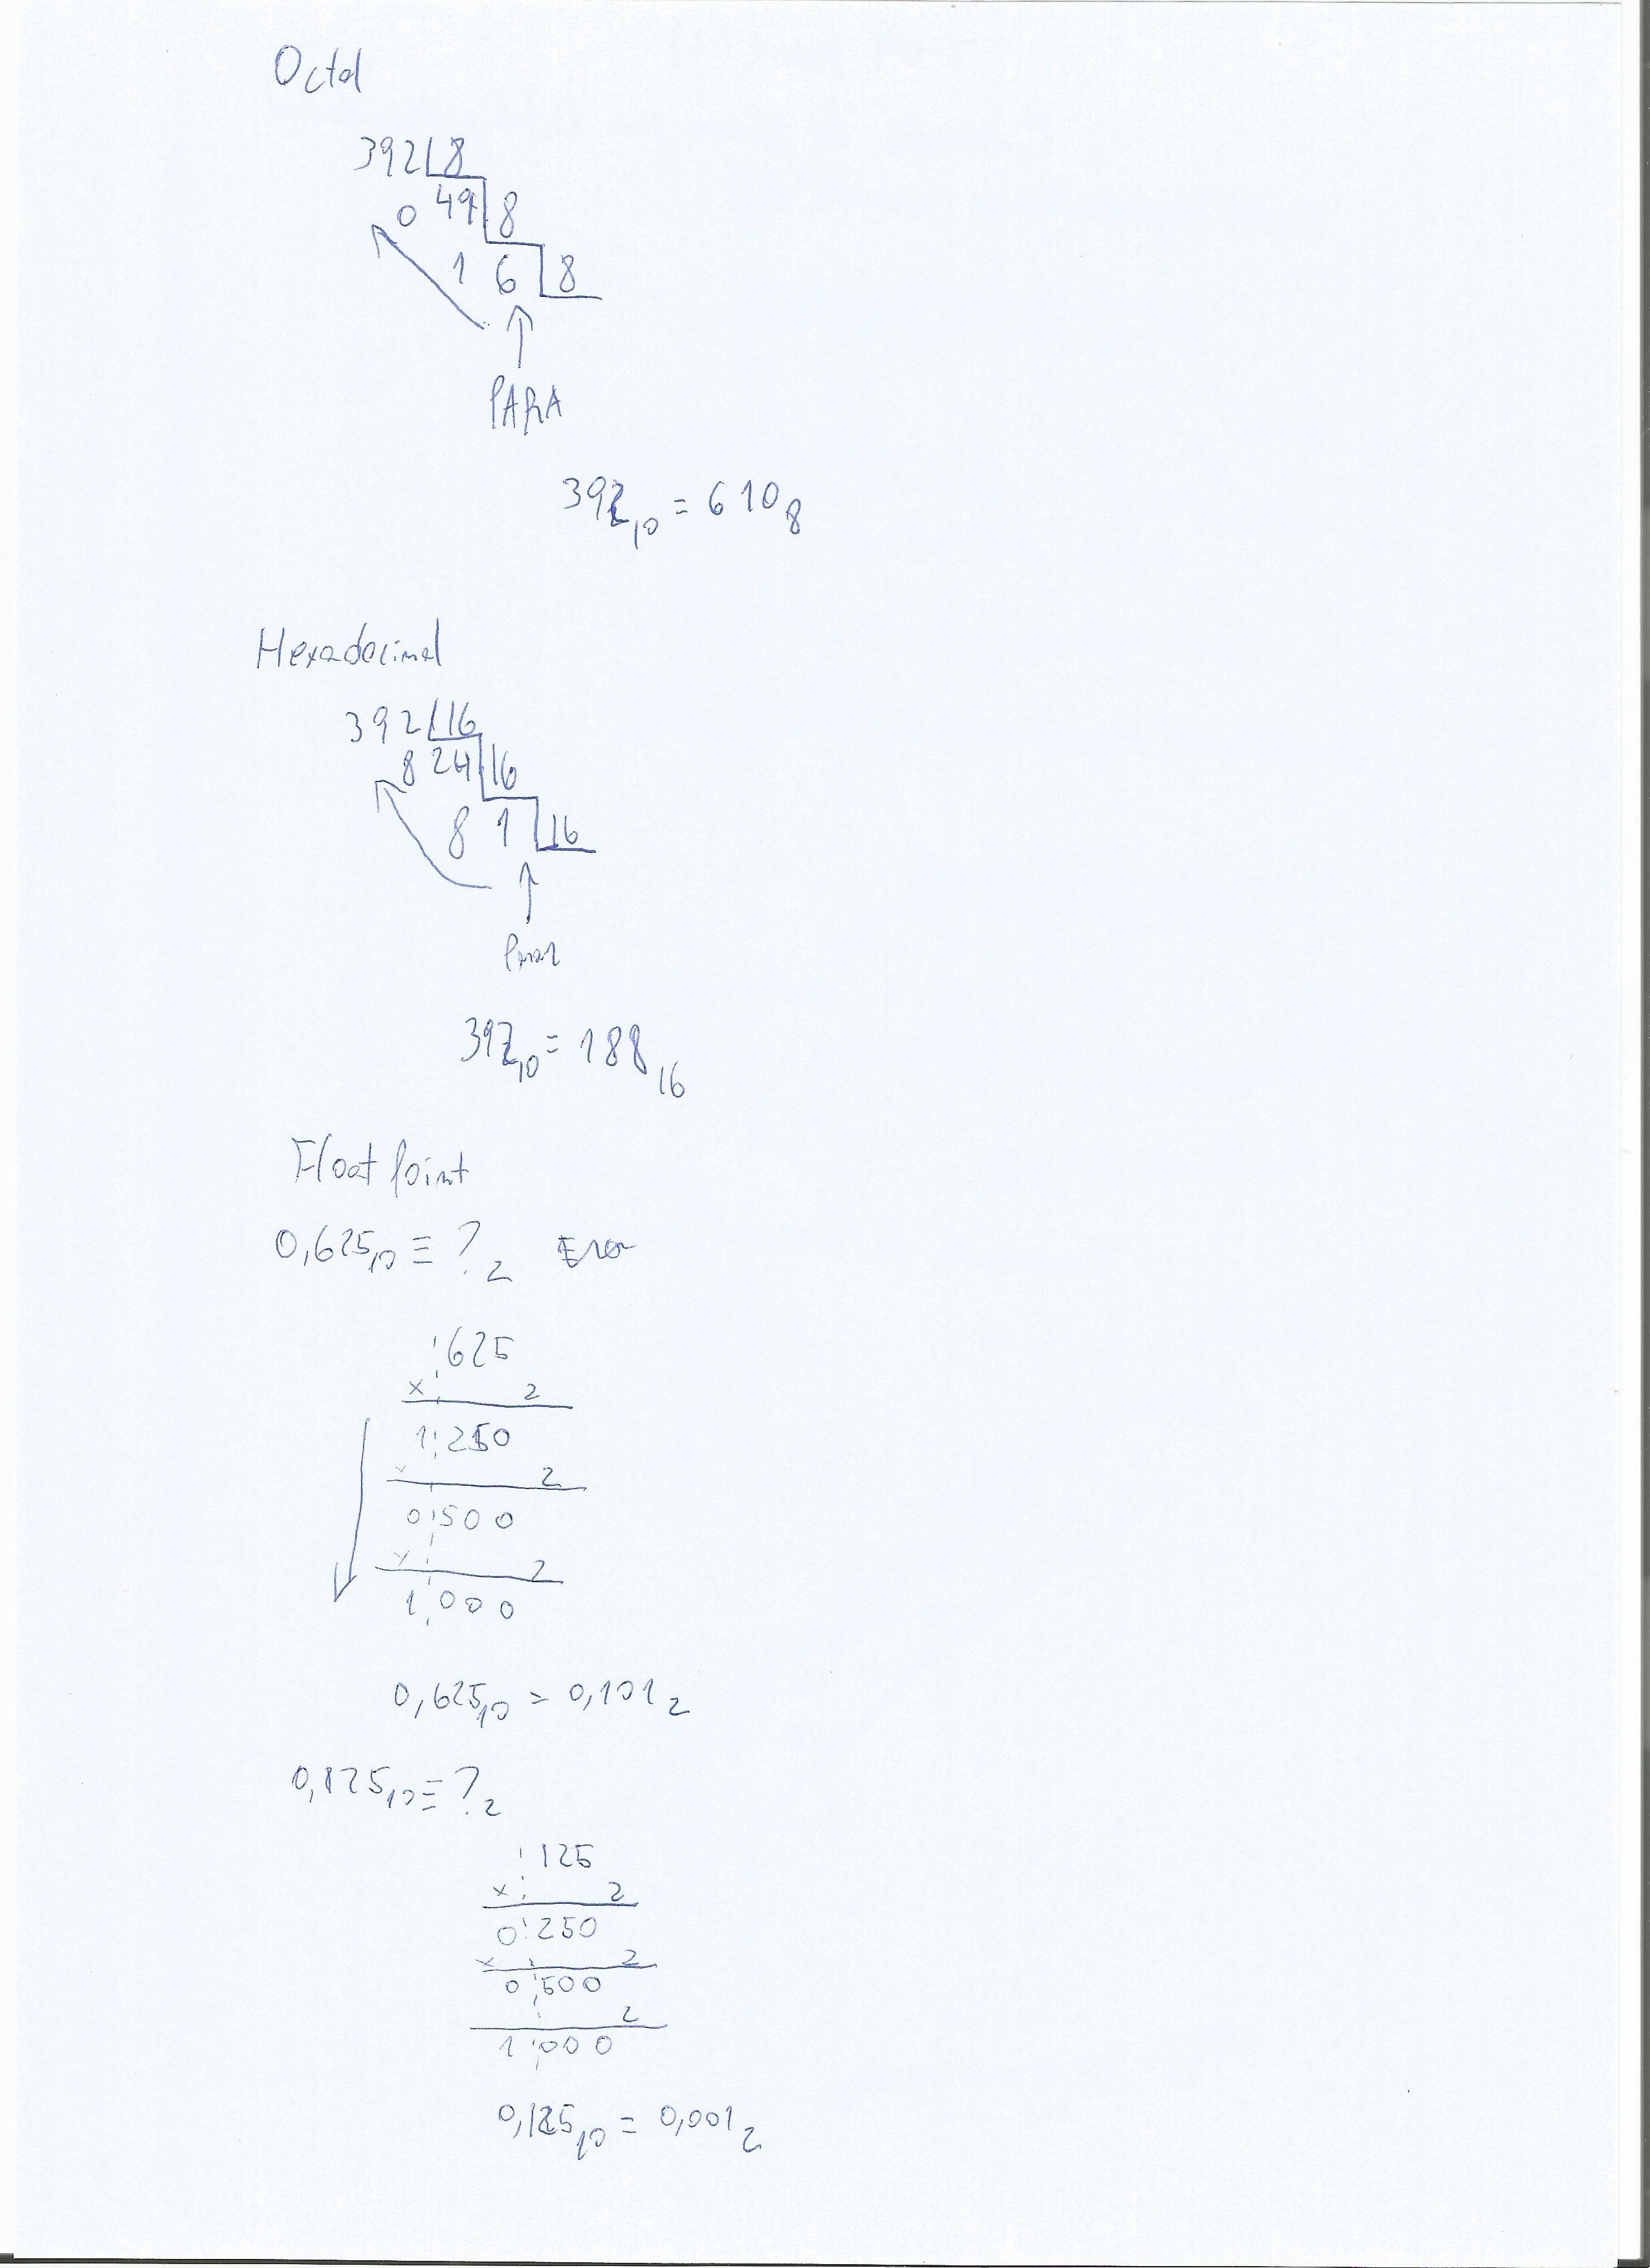 Octal
392 8
0 49 8
1 6 8
PARA
392₁₀ = 610₈
Hexadecimal
392 16
8 24 16
8 1 16
392₁₀ = 188₁₆
Float point
0,625₁₀ ≡ ?₂
625
x 2
1 250
x 2
0 500
x 2
1 000
0,625₁₀ = 0,101₂
0,125₁₀ ≡ ?₂
125
x 2
0 250
x 2
0 500
2
1 000
0,125₁₀ = 0,001₂